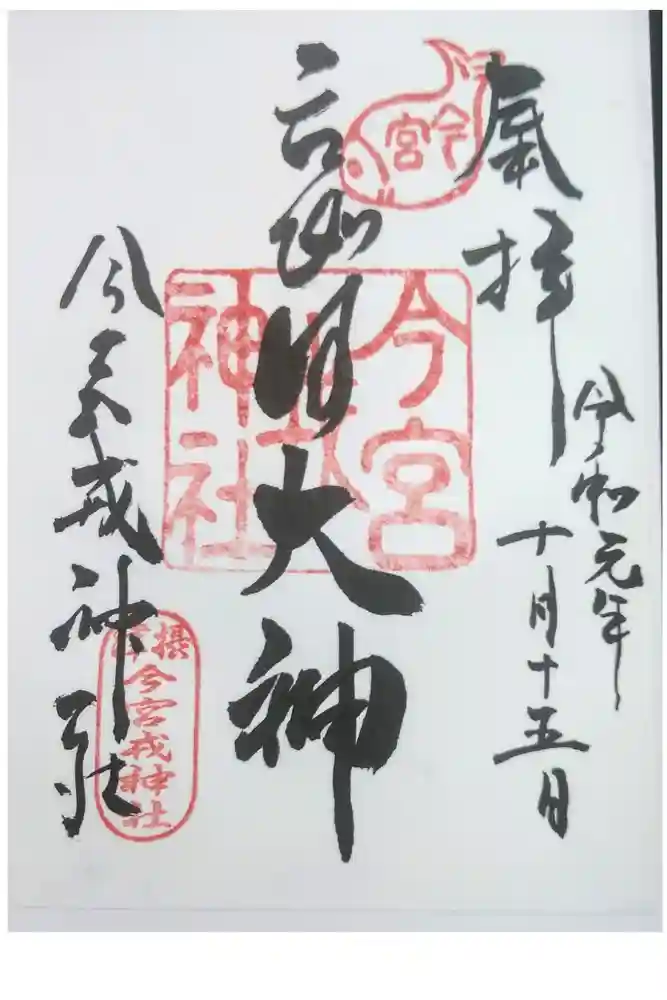 今宮
拝
令和元年
十月十五日
大神
今宮
神社
今宮戎神社
摂津
今宮戎神社